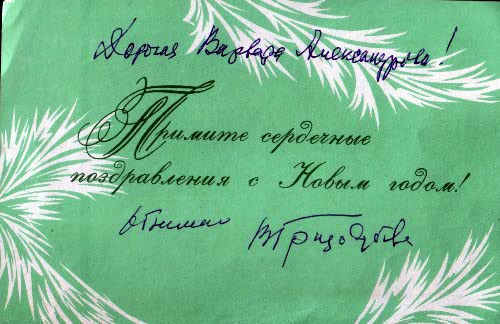 Дорогая Варвара Александровна!
Примите сердечные
поздравления с Новым годом!